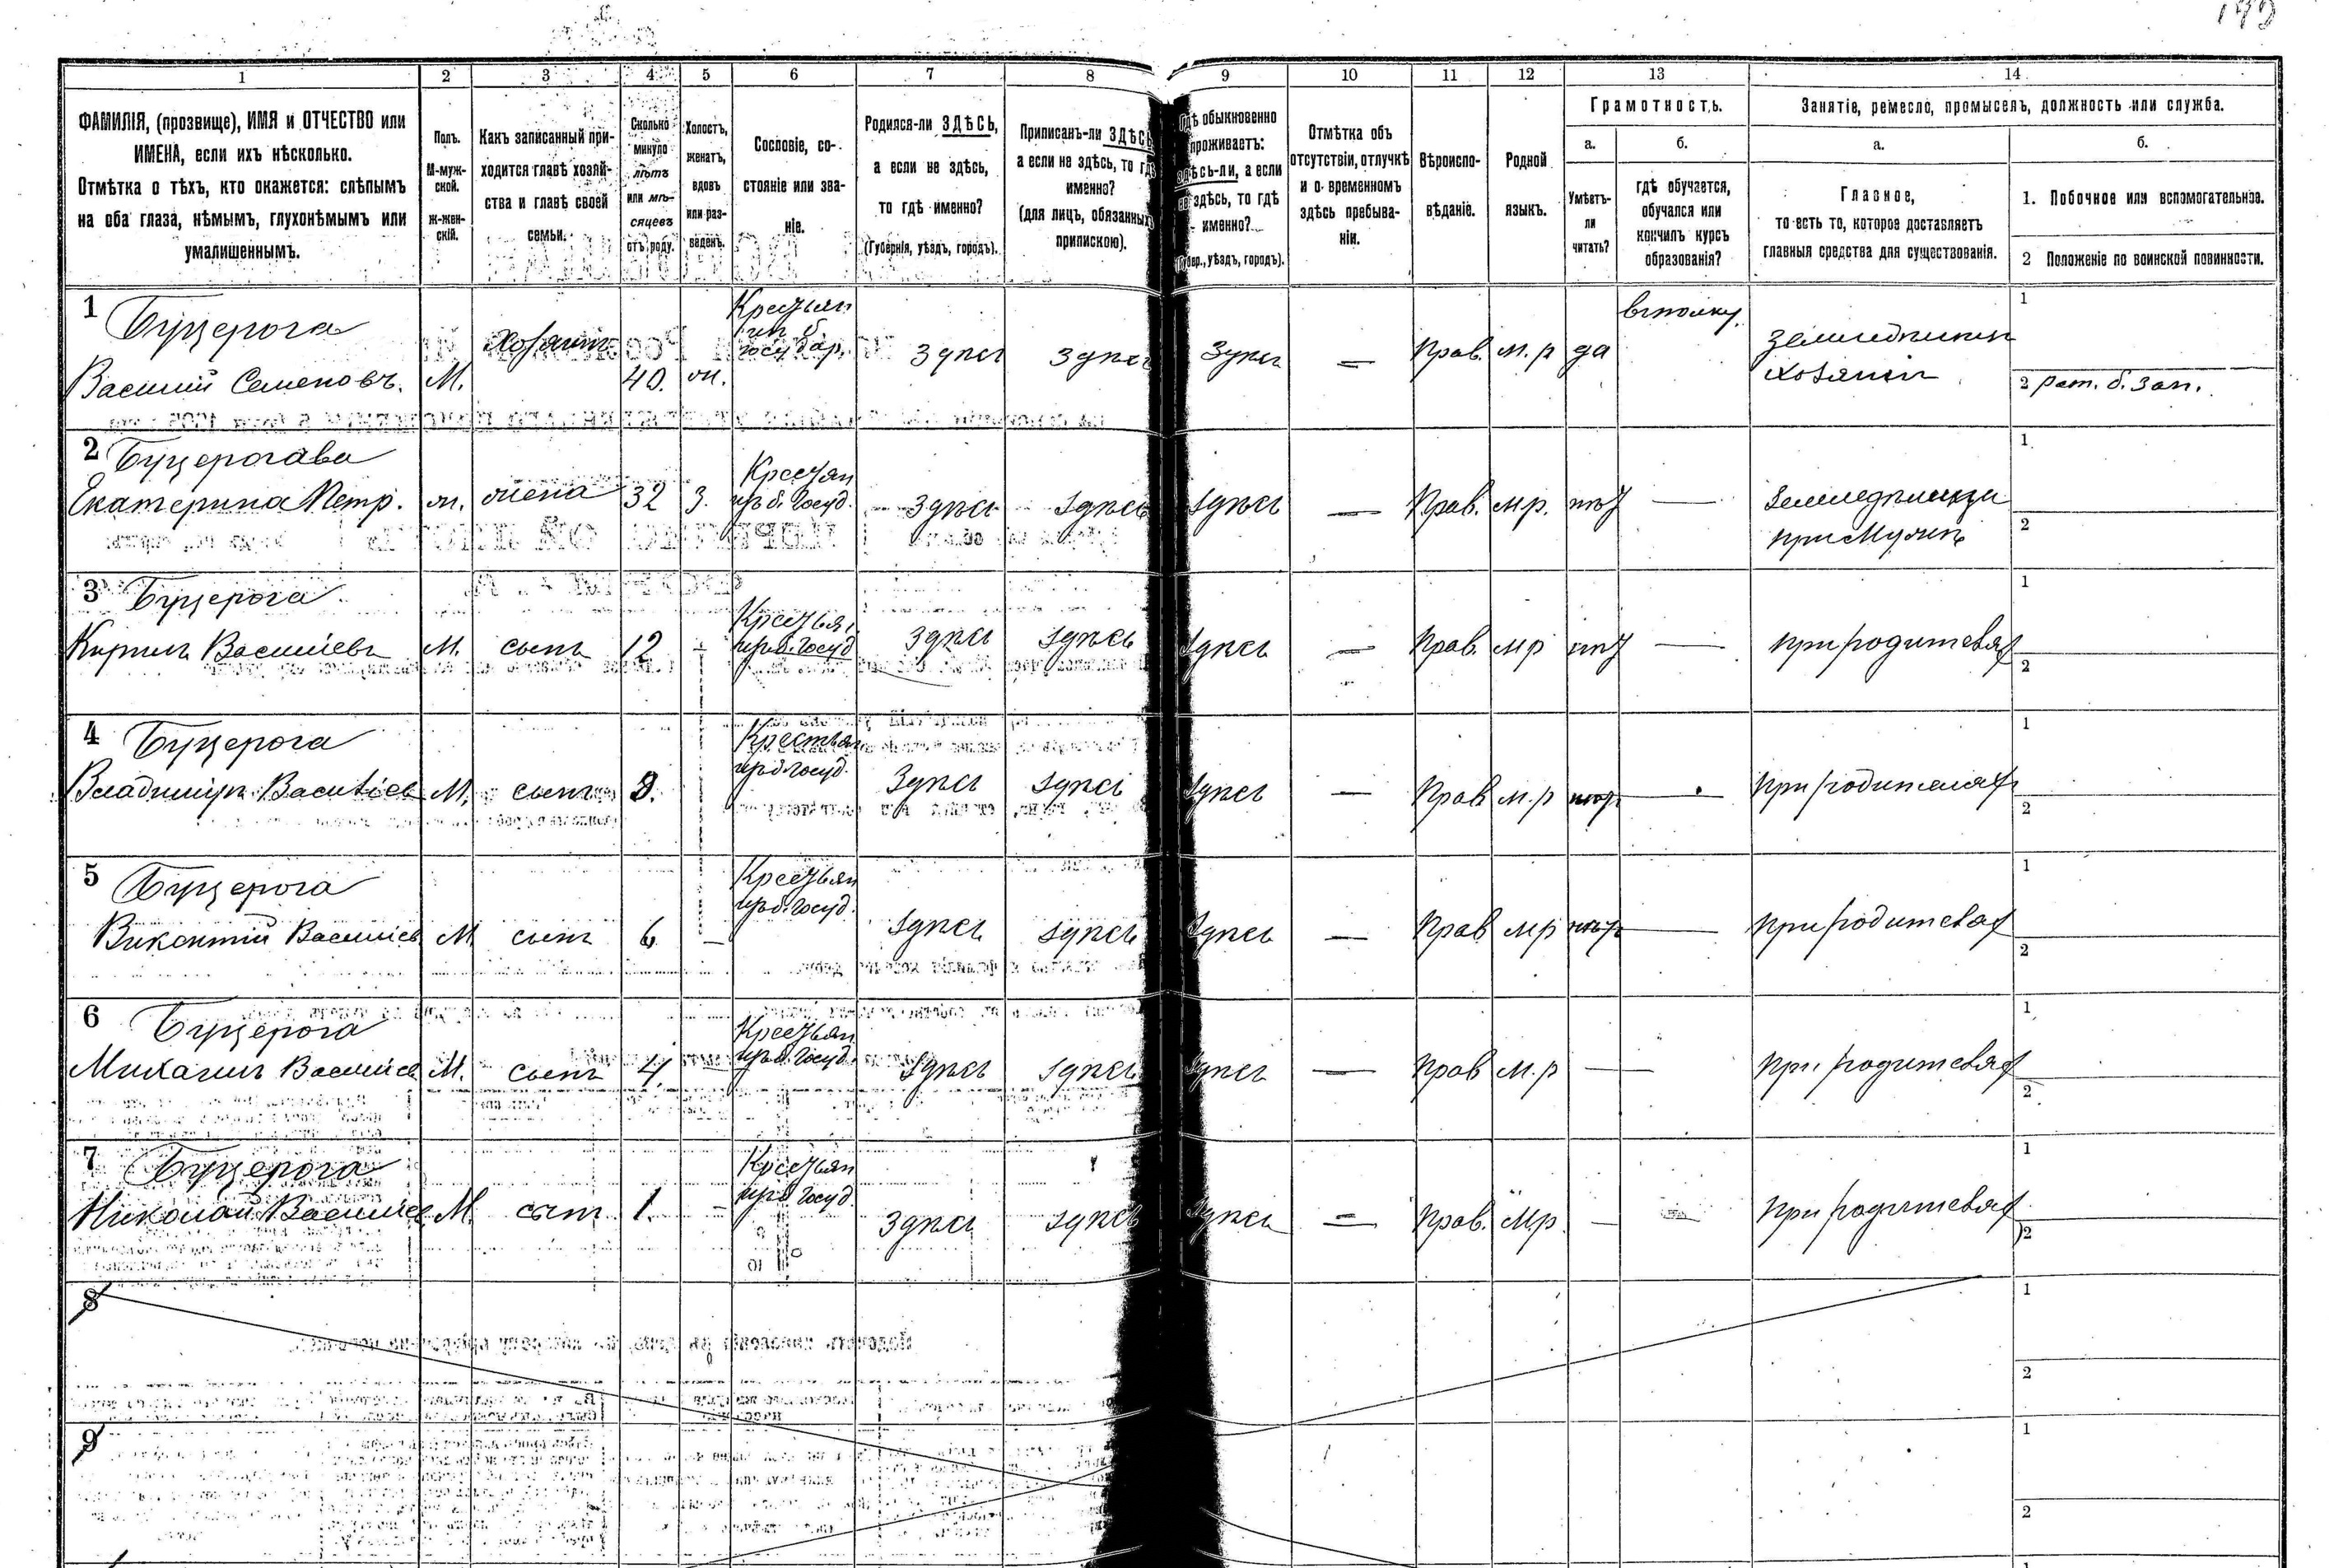 1 2 3 4 5 6 7 8 9 10 11 12 13 14
ФАМИЛІЯ, (прозвище), ИМЯ и ОТЧЕСТВО или
ИМЕНА, если ихъ нѣсколько.
Отмѣтка о тѣхъ, кто окажется: слѣпымъ
на оба глаза, нѣмымъ, глухонѣмымъ или
умалишеннымъ.
Полъ.
М-муж-
ской.
ж-жен-
скій.
Какъ записанный при-
ходится главѣ хозяй-
ства и главѣ своей
семьи.
Сколько
минуло
лѣтъ
или мѣ-
сяцевъ
отъ роду.
Холостъ,
женатъ,
вдовъ
или раз-
веденъ.
Сословіе, со-
стояніе или зва-
ніе.
Родился-ли ЗДѢСЬ,
а если не здѣсь,
то гдѣ именно?
(Губернія, уѣздъ, городъ).
Приписанъ-ли ЗДѢСЬ,
а если не здѣсь, то гдѣ
именно?
(для лицъ, обязанныхъ
припискою).
Гдѣ обыкновенно
проживаетъ:
здѣсь-ли, а если
не здѣсь, то гдѣ
именно?
(Губер., уѣздъ, городъ).
Отмѣтка объ
отсутствіи, отлучкѣ
и о временномъ
здѣсь пребыва-
ніи.
Вѣроиспо-
вѣданіе.
Родной
языкъ.
Грамотность.
а.
Умѣетъ-
ли
читать?
б.
гдѣ обучается,
обучался или
кончилъ курсъ
образованія?
Занятіе, ремесло, промыселъ, должность или служба.
а.
Главное,
то есть то, которое доставляетъ
главныя средства для существованія.
б.
1. Побочное или вспомогательное.
2 Положеніе по воинской повинности.
1 Буцерога
Василий Семеновъ. М. Хозяинъ 40. ж. Крестьян
ин б.
государ. Здѣсь Здѣсь Здѣсь — Прав. м. р да
въ полку.
Земледѣлецъ
Хозяинъ
1
2 рат. б. зап.
2 Буцерогава
Екатерина Петр. ж. жена 32 з. Крестьян
ка б. Госуд. Здѣсь Здѣсь Здѣсь — Прав. м р. нѣт —
Земледѣлица
при Мужѣ
1
2
3 Буцерога
Кирилъ Васильевъ М. сынъ 12 - Крестья
из б. Госуд Здѣсь Здѣсь Здѣсь — Прав. м р нѣт — при родителях
1
2
4 Буцерога
Владимиръ Василіев М. сынъ 8. Крестьян
из б. Госуд. Здѣсь Здѣсь Здѣсь — Прав м. р нѣт — при родителях
1
2
5 Буцерога
Викентій Василіев М сынъ 6 — Крестьян
из б. Госуд. Здѣсь Здѣсь Здѣсь — Прав м р нѣт — при родителях
1
2
6 Буцерога
Михаилъ Василіев М. сынъ 4. Крестьян
из б. Госуд. Здѣсь Здѣсь Здѣсь — Прав м. р — — при родителях
1
2
7 Буцерога
Николай Василіев М сынъ 1. - Крестьян
из б Госуд Здѣсь Здѣсь Здѣсь — Прав. м р — при родителях
1
2
8
1
2
9
1
2